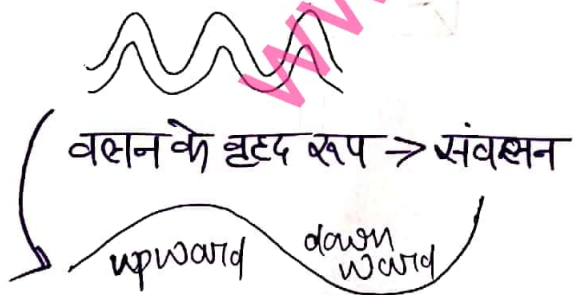 वलन के वृहद रूप → संवलन
upward down
ward